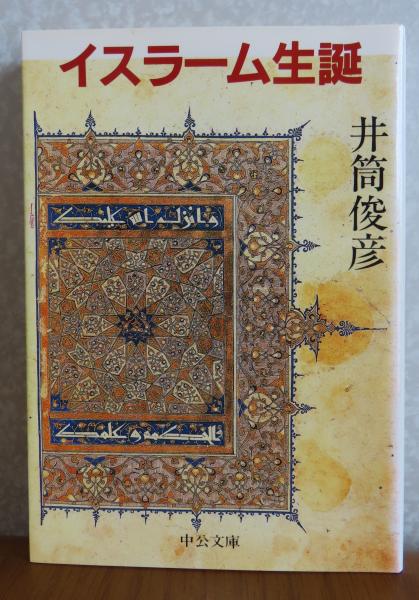 イスラーム生誕
井筒俊彦
中公文庫